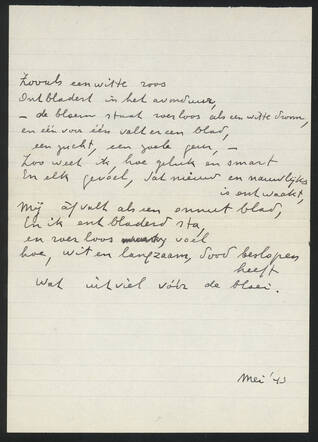 Zooals een witte roos
Ontbladert in het avonduur,
– de bloem staat roerloos als een witte droom,
en één voor één valt er een blad,
een zucht, een zoele geur, –
Zoo weet ik hoe geluk en smart
En elk gevoel, dat nieuw en nauwlijks
is ontwaakt,
Mij afvalt als een onnut blad,
En ik ontbladerd sta,
en roerloos voel
hoe, wit en langzaam, dood beslopen
heeft
Wat uitviel vóór de bloei.
Mei '43